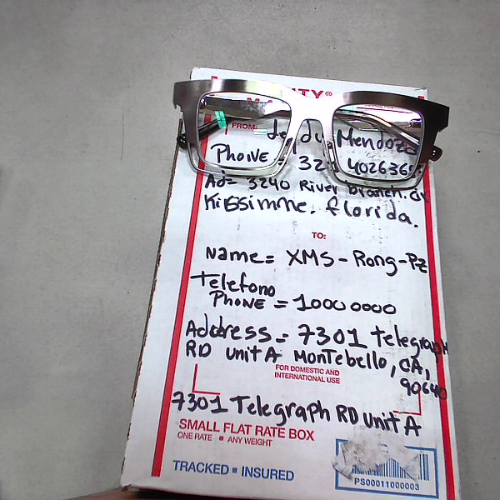 FROM:
Mendoza
Phone = 32 4026365
Ad= 3240 River branch. dr
Kissimne. florida.
TO:
Name= XMS-Rong-Pz
Telefono
PHONE = 10000000
Address= 7301 telegraph
RD unit A Montebello, CA,
90640
FOR DOMESTIC AND
INTERNATIONAL USE
7301 Telegraph RD unit A
SMALL FLAT RATE BOX
ONE RATE ■ ANY WEIGHT
TRACKED ■ INSURED
PS00011000003